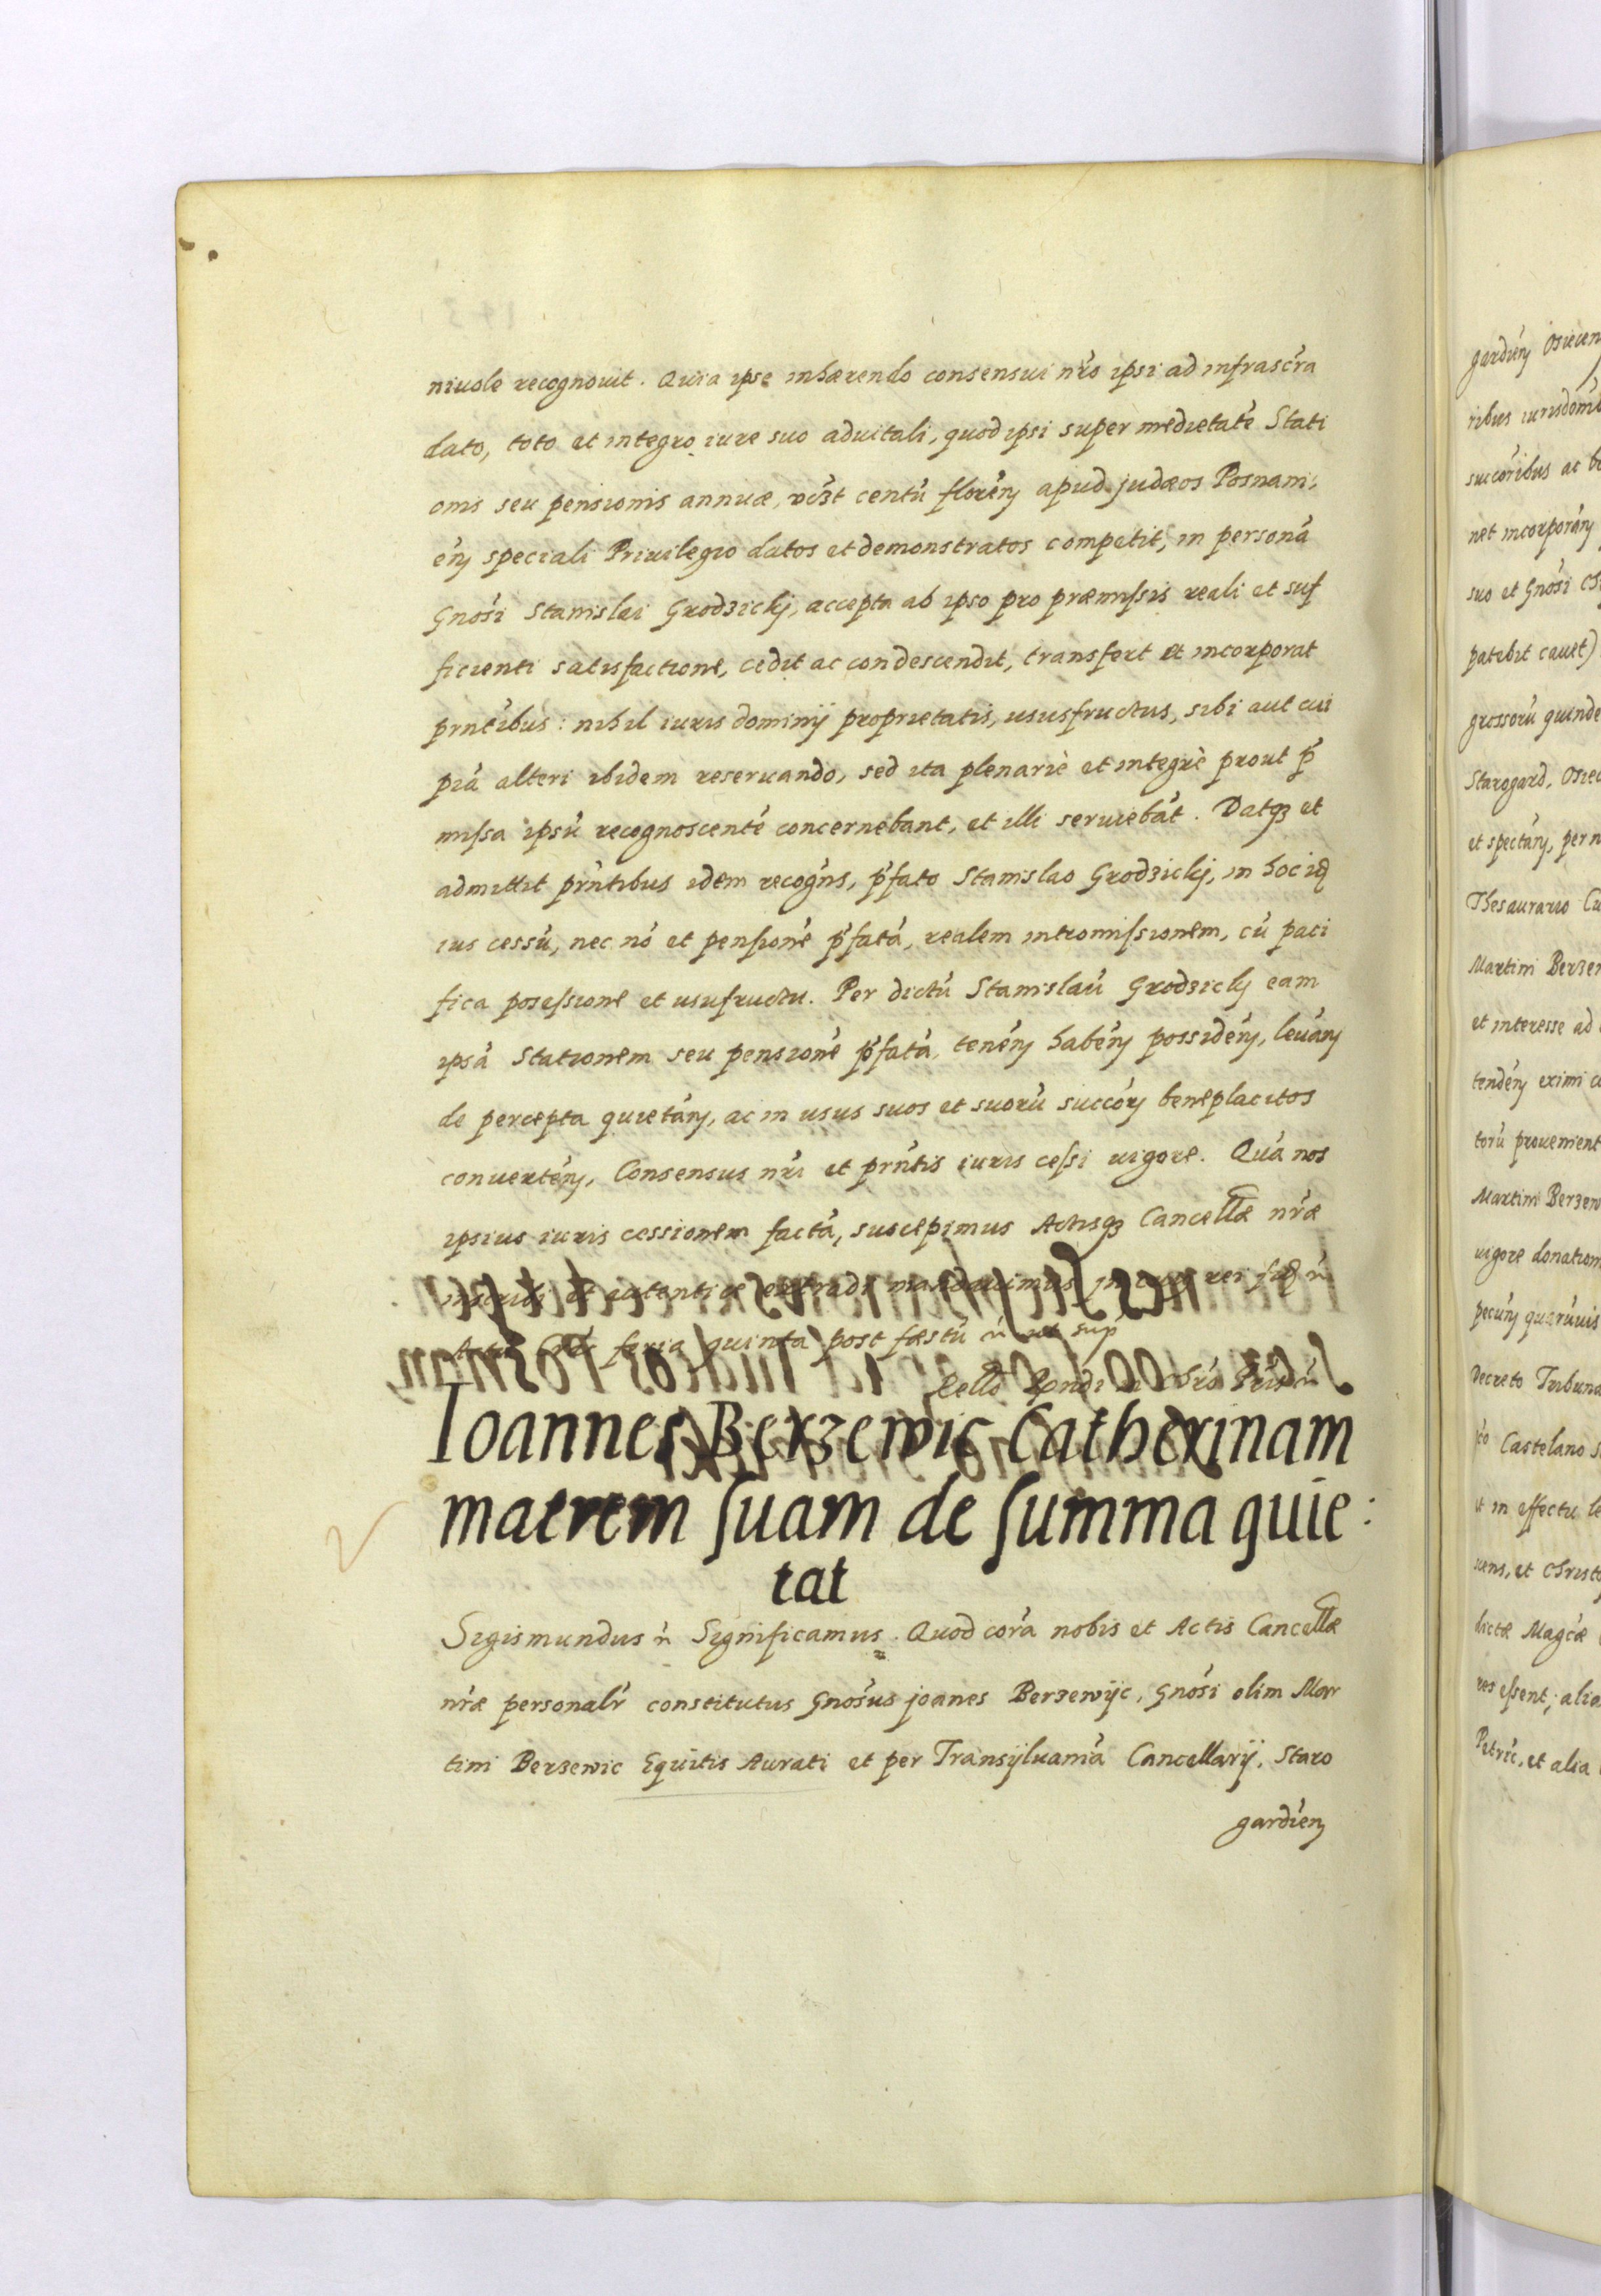 niuole recognouit. Quia ipse inhærendo consensui nr̃o ipsi ad infrascr̃a
dato, toto et integro iure suo aduitali, quod ipsi super medietate Stati
onis seu pensionis annuæ, vczt centũ florẽn apud judæos Posnani,
eñ speciali Priuilegio datos et demonstratos competit, in personã
Gnosi Stanislai Grodzickj, accepta ab ipso pro præmissis reali et suf
ficienti satisfactione, cedit ac condescendit, transfert et incorporat
prñtibus: nihil iuris dominij proprietatis, ususfructus, sibi aut cui
piã alteri ibidem reseruando, sed ita plenariè et integrè prout p̃
missa ipsũ recognoscentẽ concernebant, et illi seruiebãt. Datq3 et
admittit prñtibus idem recogñs, p̃fato Stanislao Grodzickj, in hoc idq
ius cessũ, nec nõ et pensionẽ p̃fatã, realem intromissionem, cũ paci
fica posessione et usufructu. Per dictũ Stanislaũ Grodzickj eam
ipsã Stationem seu pensionẽ p̃fatã, tenẽn habẽn possidẽn, leuãn
de percepta quietãn, ac in usus suos et suorũ succõrn beneplacitos
conuertẽn, Consensus nr̃i et prñtis iuris cessi uigore. Quã nos
ipsius iuris cessionem factã, suscepimus Actisq3 Cancellæ nr̃æ
inscribi et autentice extradi mandauimus, in cuius rei fidẽ ñ
feria quinta post fæstũ ñ ut sup̃
Ioannes Berzewic Catherinam
matrem suam de summa quie:
tat
Sigismundus ñ Significamus. Quod corã nobis et Actis Cancellæ
nr̃æ personalr̃ constitutus Gnosus joanes Berzewijc, Gnosi olim Mar
tini Berzewic Equitis Aurati et per Transijluaniã Cancellarij, Staro
gardien

gardieñ
ribus
succoribus ac
net incorporãn
suo et Gnosi
patebit cauet)
grossorũ quinde
Starogard,
et spectãn, per n
Thesaurario Cu
Martini Berze
et interesse ad
tendẽn eximi
torũ prouenient
Martini Berzew
uigore donation
pecũn quarũuis
Decreto Tribuna
Castelano
in effectu le
et Christ
dictæ Magcæ
res essent, alia
et alia